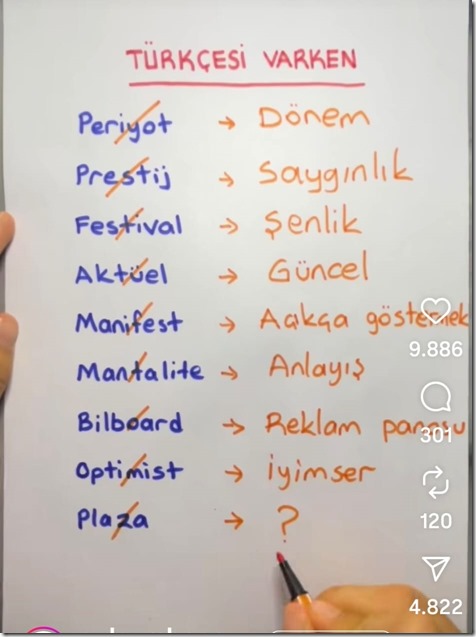 TÜRKÇESİ VARKEN
Periyot → Dönem
Prestij → Saygınlık
Festival → Şenlik
Aktüel → Güncel
Manifest → Açıkça göstermek
Mantalite → Anlayış
Bilboard → Reklam panosu
Optimist → İyimser
Plaza → ?
9.886
301
120
4.822